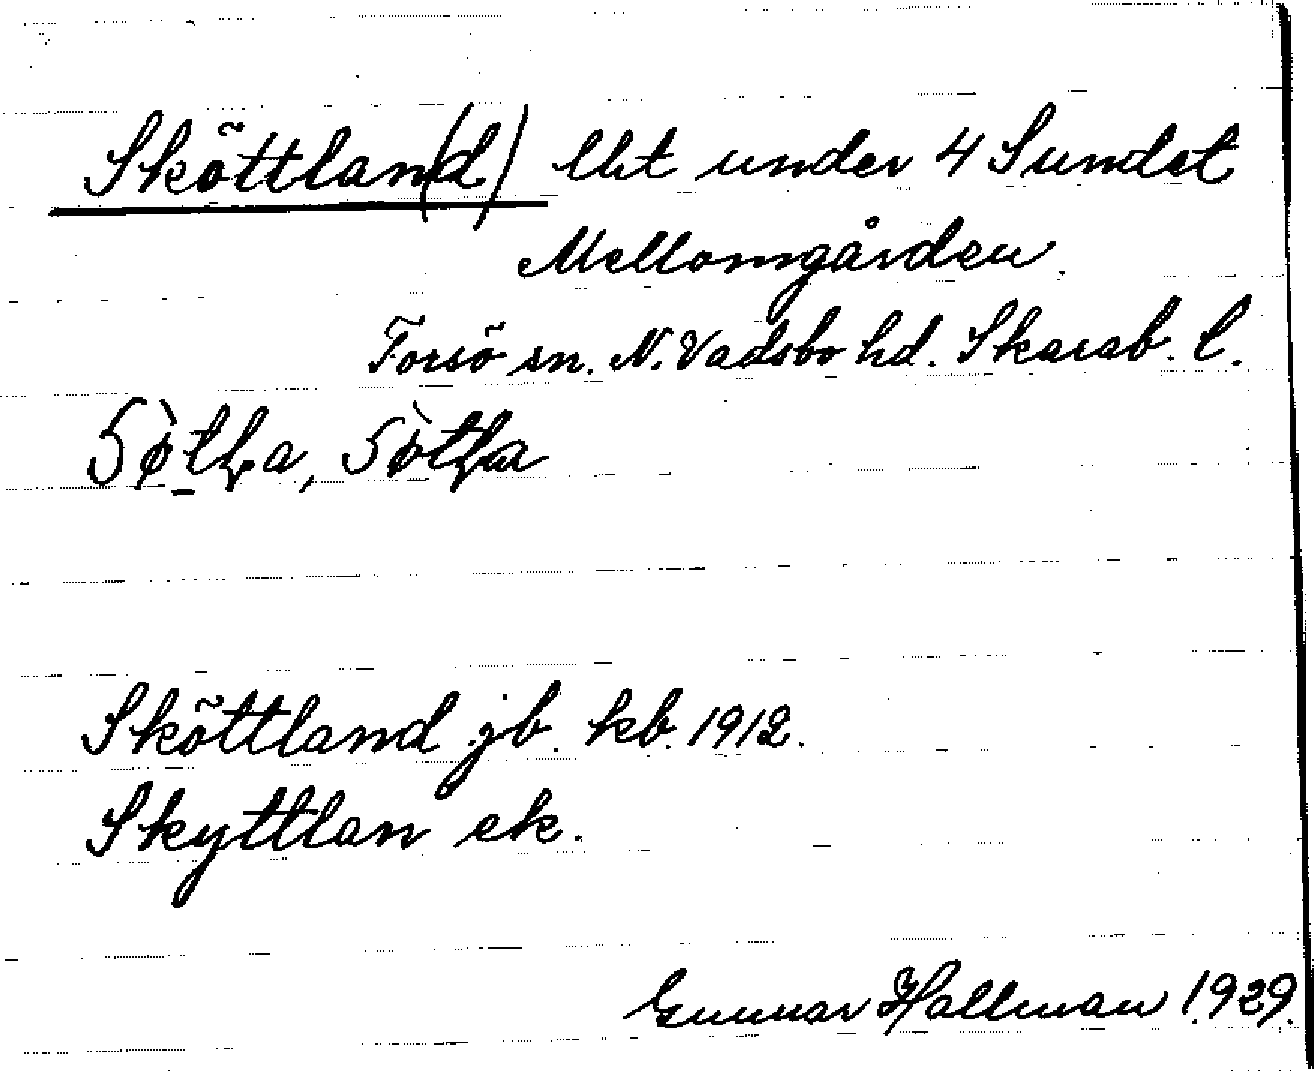 Sköttlan(d) lht under 4 Sundet
Mellomgården.
Torsö sn. N. Vadsbo hd. Skarab. l.
Sköttland jb. kb. 1912.
Skyttlan ek.
Gunnar Hallman 1929.